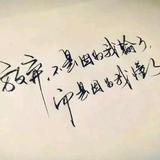 放弃,不是因为我输了,
而是因为我懂了